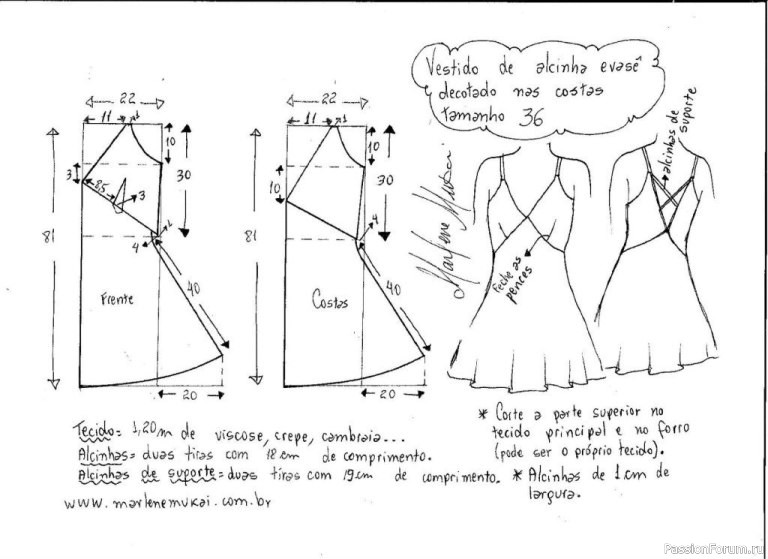 Vestido de alcinha evasê
decotado nas costas
tamanho 36
22
11
1
10
3
8,5
3
30
81
1
4
4
40
Frente
20
22
11
1
10
10
30
81
4
40
Costas
20
Marlene Mukai
alcinhas de
suporte
Feche as
pences
Tecido= 1,20m de viscose, crepe, cambraia...
Alcinhas= duas tiras com 18 cm de comprimento.
Alcinhas de suporte= duas tiras com 19 cm de comprimento.
www.marlenemukai.com.br
* Corte a parte superior no
tecido principal e no forro
(pode ser o próprio tecido).
* Alcinhas de 1 cm de
largura.
PassionForum.ru